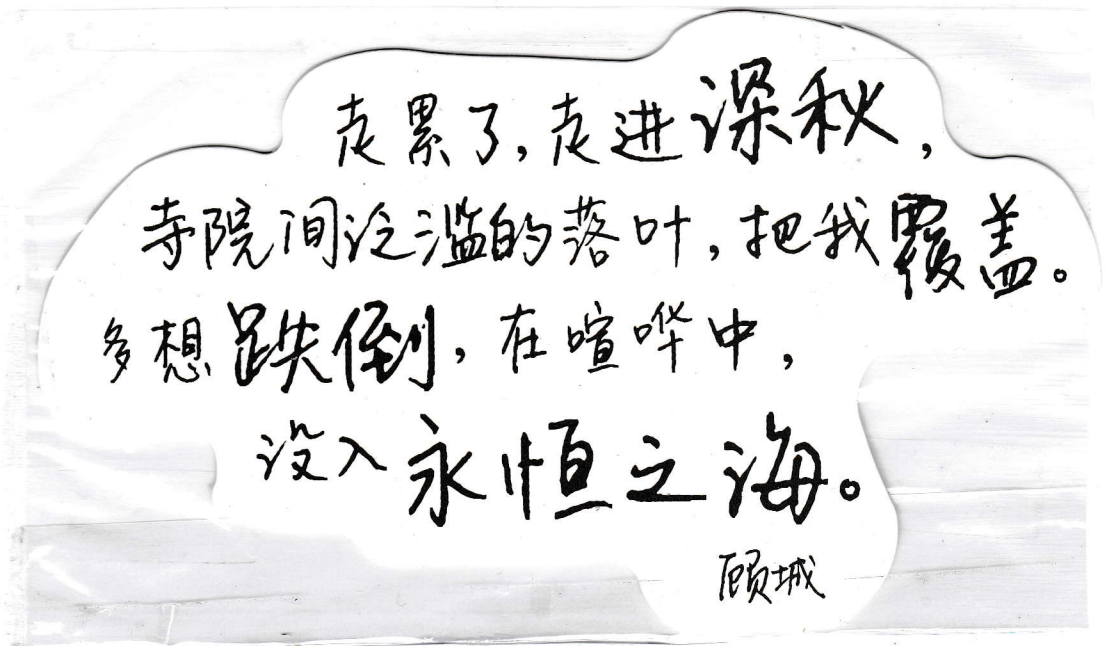 走累了，走进深秋，
寺院间泛滥的落叶，把我覆盖。
多想跌倒，在喧哗中，
没入永恒之海。
顾城